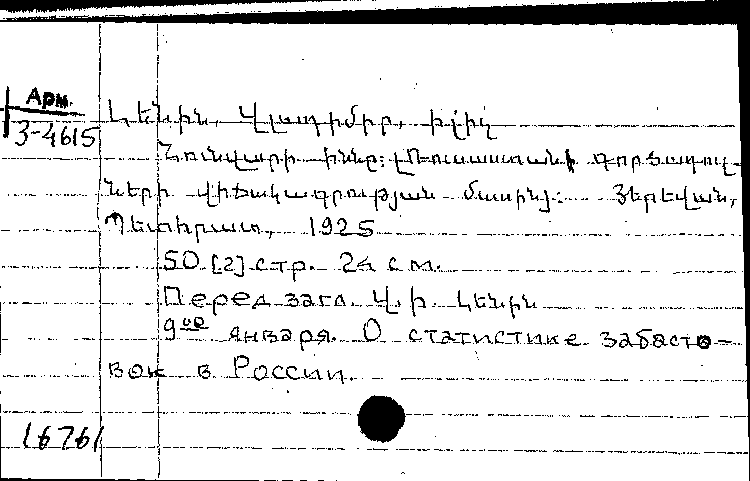 Арм.
3-4615
Լենին, Վլադիմիր, Իլիչ
Հունվարի ինը: [Ռուսաստանի գործադուլ-
ների վիճակագրության մասին]: Յերեվան,
Պետհրատ, 1925
50 [2] стр. 24 см.
Перед загл. Վ. Ի. Լենին
9ое января. О статистике забасто-
вок в России.
16761